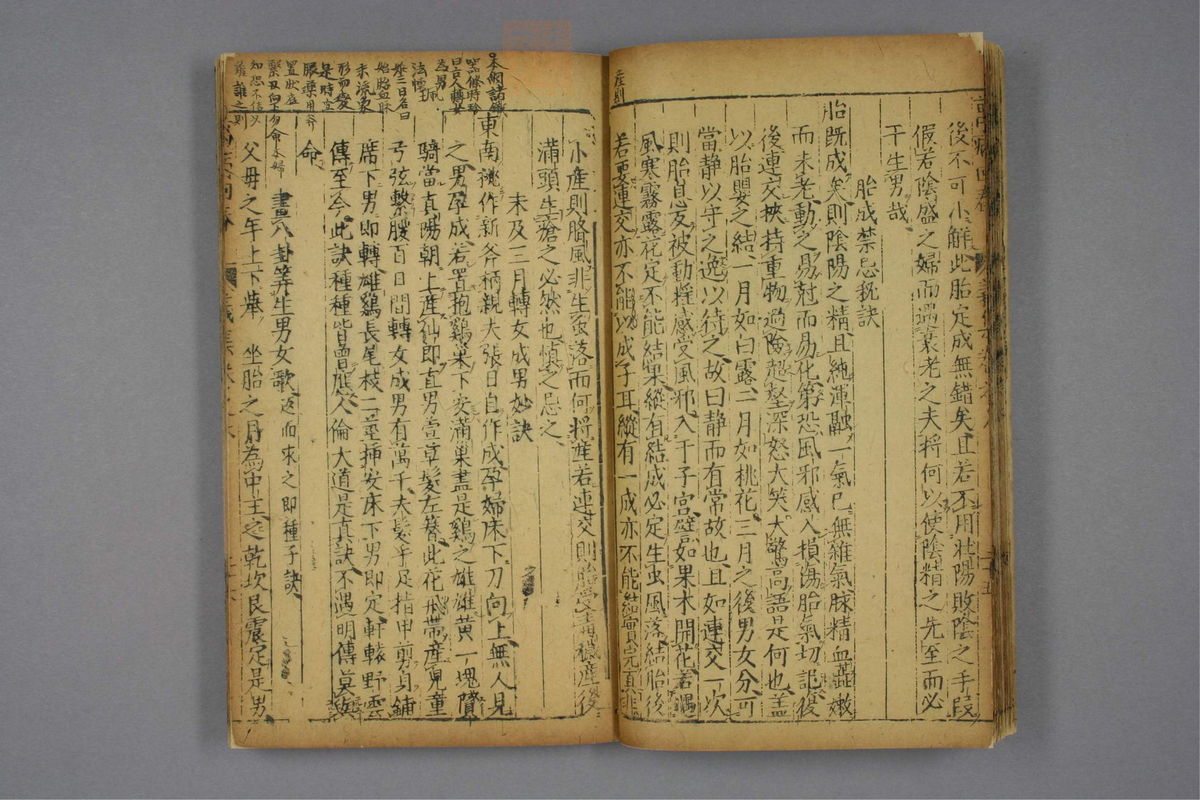 後不可小解此胎定成無錯矣且若不用壯陽敗陰之手段
假若陰盛之婦而遇衰老之夫將何以使陰精之先至而必
干生男哉
胎成禁忌秘訣
胎既成矣則陰陽之精且純渾融一氣已無雜氣腠精血蓋嫩
而未老動之易㝵而易化第恐風邪感入損傷胎氣切記後
後連交挾持重物過險超壑深怒大笑大驚高語是何也蓋
以胎嬰之結一月如白露二月如桃花三月之後男女分可
當静以守之逸以待之故曰静而有常故也且如連交一次
則胎息反被動精感受風邪入于子宮譬如果木開花若遇
風寒霧露花定不能結果縱有結成必定生虫風落結胎後
若要連交亦不能以成子耳縱有一成亦不能結實完真非
産則
小產則臍風非生蛋落而何將產若連交則胎受毒穢產後
滿頭生瘡之必然也慎之忌之
未及三月轉女成男妙訣
東南桃作新斧柄親夫張日自作成孕婦床下刀向上無人見
之男孕成若置抱鷄巢下安滿巢盡是鷄之雄雄黃一塊
騎當貞陽朝上產仙即直男萱草髮左簪此花戒帶產兒童
弓弦繫腰百日間轉女成男有萬千夫髮手足指甲剪貞鋪
席下男即轉雄鷄長尾枝二莖插安床下男即定軒轅野雲
傳至今此訣種種皆曾應人倫大道是真訣不遇明傳莫與
命
畫八卦筭生男女歌 返而求之即種子訣
父母之年上下葬 坐胎之月為中主之乾坎艮震定是男
本綱諸
曰古人轉女
為男
法懷
娠三日名曰
始胎血脉
未流象
形而變
是時宜
服藥用斧
置狀底
繫刃向下勿令本婦
知恐不信以